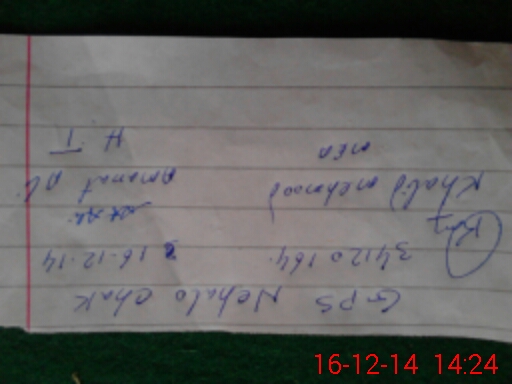 GPS Nehalo chak
34120164. 16-12-14
Khalid mehmood Amanat Ali
MEA H T
16-12-14 14:24